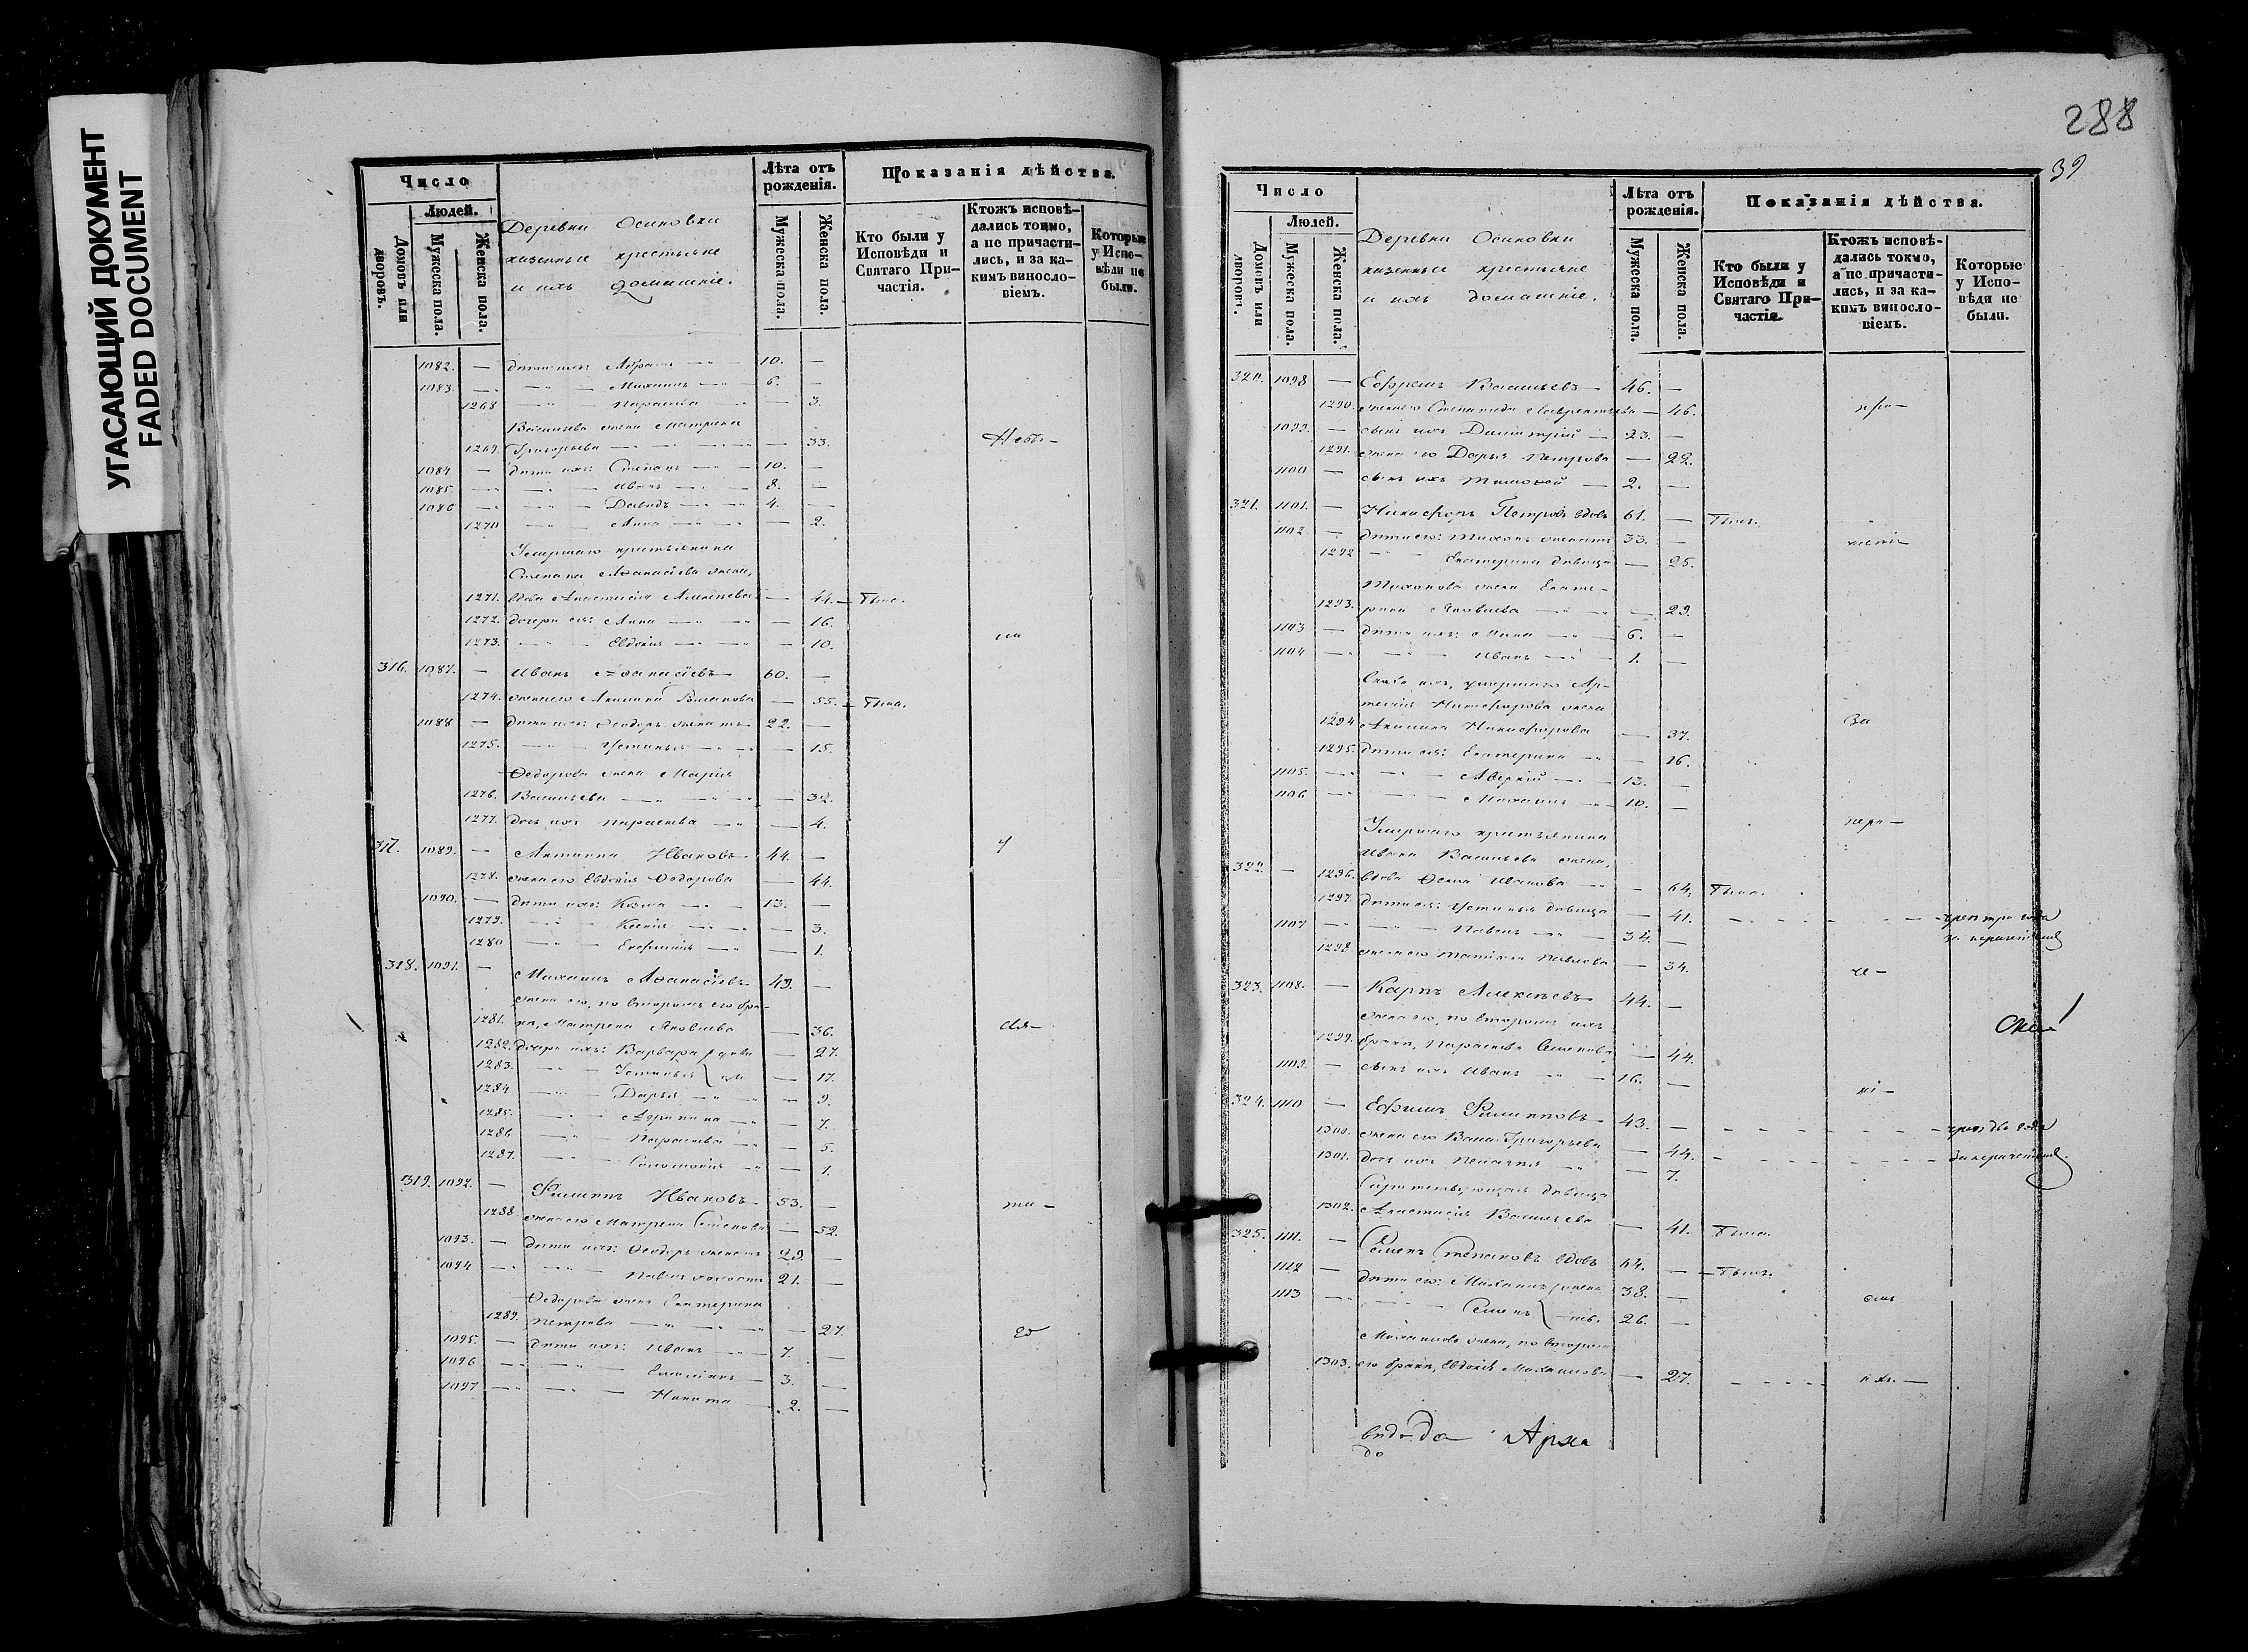 УГАСАЮЩИЙ ДОКУМЕНТ
FADED DOCUMENT
Число
Людей.
Домовъ или дворовъ.
Мужеска пола.
Женска пола.
Деревни Осиновки
казенные крестьяне
и ихъ домашніе.
Лѣта отъ рожденія.
Мужеска пола.
Женска пола.
Показанія дѣйства.
Кто были у Исповѣди и Святаго Причастія.
Ктожъ исповѣдались токмо, а не причастились, и за какимъ винословіемъ.
Которые у Исповѣди не были.
1082. — дѣти ихъ: Абрамъ — 10. —
1083. — Михаилъ — 6. —
1268 — Параскева — 3.
Васильева жена Матрена
1269. Григорьева — 33.
1084 — дѣти ихъ: Степанъ — 10. —
1085. — Иванъ — 8. —
1086 — Давидъ — 4. —
1270 — Анна — 2.
Умершаго крестьянина
Степана Аѳанасіева жена,
1271. вдова Анастасія Алексѣева — 44. — была.
1272. дочери ея: Анна — 16.
1273. — Евдокія — 10.
316. 1087. — Иванъ Аѳанасіевъ — 60. —
1274. жена его Акилина — 55. — была.
1088 — дѣти ихъ: Ѳеодоръ женатъ 22. —
1275. — Устинья — 15.
Ѳедорова жена Марія
1276. Васильева — 32.
1277. дочь ихъ Параскева — 4.
317. 1089. — Ивановъ — 44. —
1278. жена его Евдокія Ѳедорова — 44.
1090. — дѣти ихъ: Козма — 13. —
1279. — Ксенія — 3.
1280 — Евфимія — 1.
318. 1091. — Михаилъ Аѳанасіевъ — 49. —
жена его, по второмъ его бра-
1281. кѣ, Матрена Яковлева — 36.
1282. дочери ихъ: Варвара — 27.
1283. — Устинья — 17.
1284 — Дарья — 9.
1285. — Агрипина — 7.
1286 — Параскева — 5.
1287. — Соломонія — 1.
319. 1092. — Филиппъ Ивановъ — 53. —
1288 жена его Матрена Степанова — 52.
1093. — дѣти ихъ: Ѳеодоръ женатъ 29. —
1094 — Павелъ холостъ 21. —
Ѳедорова жена Екатерина
1289. Петрова — 27.
1095. — дѣти ихъ: Иванъ — 7. —
1096 — 3. —
1097 — Никита — 2. —
288
39
Число
Людей.
Домовъ или дворовъ.
Мужеска пола.
Женска пола.
Деревни Осиновки
казенные крестьяне
и ихъ домашніе.
Лѣта отъ рожденія.
Мужеска пола.
Женска пола.
Показанія дѣйства.
Кто были у Исповѣди и Святаго Причастія.
Ктожъ исповѣдались токмо, а не причастились, и за какимъ винословіемъ.
Которые у Исповѣди не были.
320. 1098 — Ефремъ Васильевъ — 46. —
1290. жена его Степанида Лаврентьева — 46.
1099. — сынъ ихъ Димитрій — 23. —
1291. жена его Дарья Петрова — 22.
1100 — сынъ ихъ Тимоѳей — 2. —
321. 1101. — Никифоръ Петровъ вдовъ 61. — былъ.
1102. — дѣти его: Тихонъ женатъ 33. —
1292 — Екатерина дѣвица — 25.
Тихонова жена Екате-
1293. рина Яковлева — 29.
1103 — дѣти ихъ: — 6. —
1104 — Иванъ — 1. —
умершаго Ар-
Никифорова жена
1294 Акилина Никифорова — 37.
1295. дѣти ея: Екатерина — 16.
1105. — Аверкій — 13. —
1106 — Михаилъ — 10. —
Умершаго крестьянина
Ивана Васильева жена,
322. — 1296. вдова Иванова — 64. была.
1297. дѣти ея: Устинья дѣвица — 41. — три года
1107 — Павелъ — 34. —
1298 жена его Татіана Павлова — 34.
323. 1108. — Карпъ Алексѣевъ — 44. —
жена его, по второмъ ихъ
1299. бракѣ, Параскева Семенова — 44.
1109. — сынъ ихъ Иванъ — 16. —
324. 1110 — Ефимъ Филипповъ — 43. — два года
1300. жена его Григорьева — 44.
1301. дочь ихъ Пелагея — 7.
дѣвица
1302. Анастасія Васильева — 41. была.
325. 1111. — Семенъ Степановъ вдовъ 64. — былъ.
1112 — дѣти его: Михаилъ 38. —
1113 — Семенъ 26. —
Михаилова жена, по второмъ
1303. его бракѣ, Евдокія Михаилова — 27.